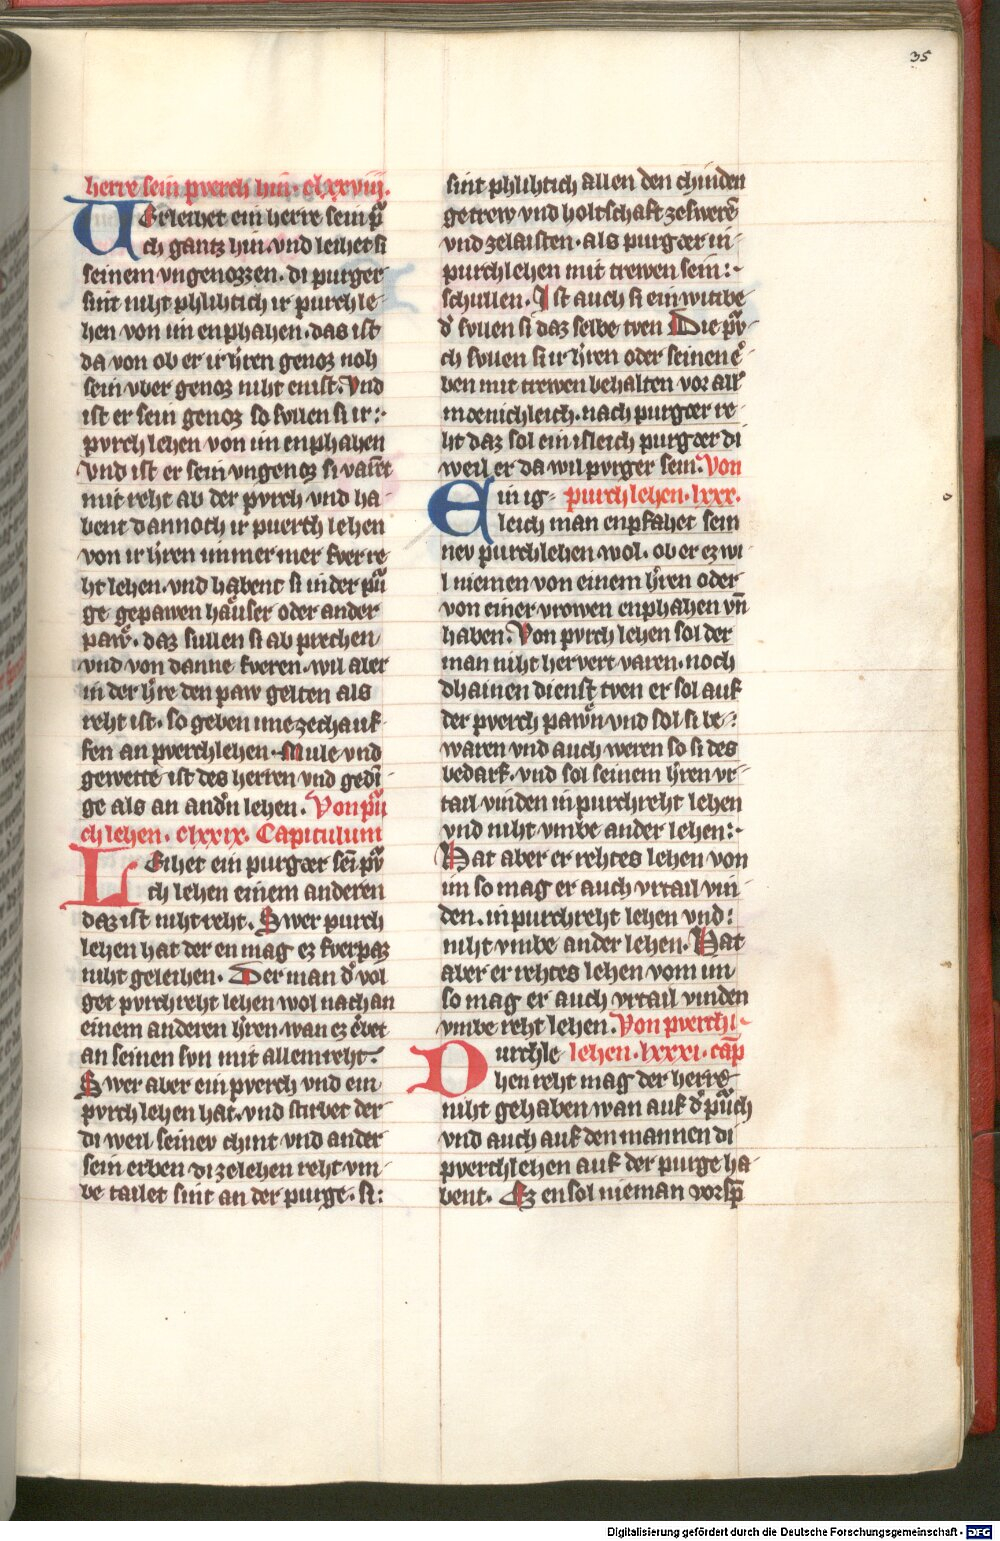 35
herre sein pverch hin · clxxviij.
VErleihet ein herre sein pv̈
ch gantz hin vnd leihet si
seinem vngenozzen. di purger
sint niht phlihtich ir purch le-
hen von im enphahen. das ist
da von ob er ir h̄ren genoz noh
sein vber genoz niht enist. Vnd
ist er sein genoz so svllen si ir:
pvrch lehen von im enphahen
vnd ist er sein vngenoz si varēt
mit reht ab der pvrch vnd ha-
bent dannoch ir pverch lehen
von ir h̄ren immer mer fver re-
ht lehen. vnd habent si in der pu̎
ge gepawen haͤuser oder ander
paw. daz sullen si ab prechen
vnd von danne fveren. wil aber
in der h̄re den paw gelten als
reht ist. so geben im ze zech auf-
fen an pverch lehen. Mule vnd
gewette ist des herren vnd gedī-
ge als an andn̄ lehen. Von pu̎
ch lehen. clxxix. Capitulum
LEihet ein purgær sēi pv̈
ch lehen einem anderen
daz ist niht reht. Swer purch
lehen hat der en mag ez fverpaz
niht geleihen. Der man d' vol
get pvrch reht lehen wol nach an
einem anderen h̄ren wan ez erbet
an seinen svn mit allem reht.
Swer aber ein pverch vnd ein
pvrch lehen hat. vnd stirbet der
di weil seinev chint vnd ander
sein erben di ze lehen reht vm-
be tailet sint an der purge. si:
sint phlihtich allen den chinden
getrew vnd holtschaft ze swerē
vnd ze laisten. als purgær in-
purch lehen mit trewen sein:
schullen. Ist auch si ein witibe
d' svllen si daz selbe tven Die pv̈-
ch svllen si ir h̄ren oder seinen e'
ben mit trewen behalten vor all'
mœnichleich. nach purgær re-
ht daz sol ein isleich purgær di
weil er da wil pvrger sein. Von
Ein ig- purch lehen. lxxx.
leich man enpfahet sein
nev purch lehen wol. ob er ez wi
l niemen von einem h̄ren oder
von einer vrowen enphahen vn̄
haben. Von pvrch lehen sol der
man niht hervert varen. noch
dhainen dienst tven er sol auf
der pverch pawn̄ vnd sol si be-
waren vnd auch weren so si des
bedarf. vnd sol seinem h̄ren vr-
tail vinden in purch reht lehen
vnd niht vmbe ander lehen:
Hat aber er rehtes lehen von
im so mag er auch vrtail vin-
den. in purch reht lehen vnd:
niht vmbe ander lehen. Hat
aber er rehtes lehen vom im
so mag er auch vrtail vinden
vmbe reht lehen. Von pverch l-
Durch le lehen. lxxxi. cap̄
hen reht mag der herre
niht gehaben wan auf d' pu̎ch
vnd auch auf den mannen di
pverch lehen auf der purge ha-
bent. Ez en sol nieman vorsp̄
Digitalisierung gefördert durch die Deutsche Forschungsgemeinschaft - DFG